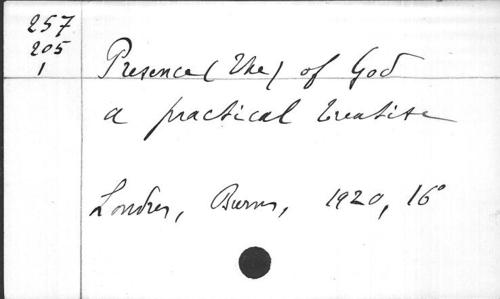 257
205
1
Presence (The) of God
a practical treatise
Londres, Burns, 1920, 16°